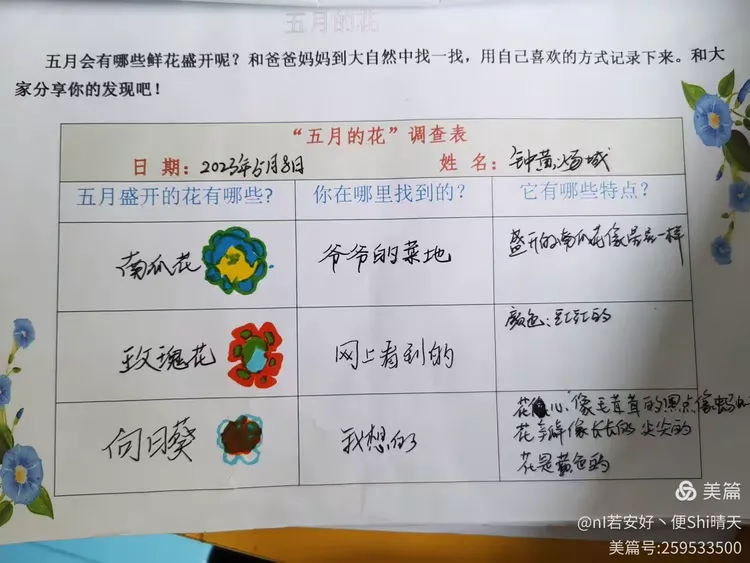 五月的花
五月会有哪些鲜花盛开呢？和爸爸妈妈到大自然中找一找，用自己喜欢的方式记录下来。和大
家分享你的发现吧！
“五月的花”调查表
日 期：2023年5月8日 姓 名：钟黄汤域
五月盛开的花有哪些? 你在哪里找到的？ 它有哪些特点？
南瓜花 爷爷的菜地 盛开的南瓜花像星星一样
玫瑰花 网上看到的 颜色：红红的
向日葵 我想的 花心像毛茸茸的黑点像蚂
花瓣像长长的尖尖的
花是黄色的
美篇
@nI若安好丶便Shi晴天
美篇号:259533500